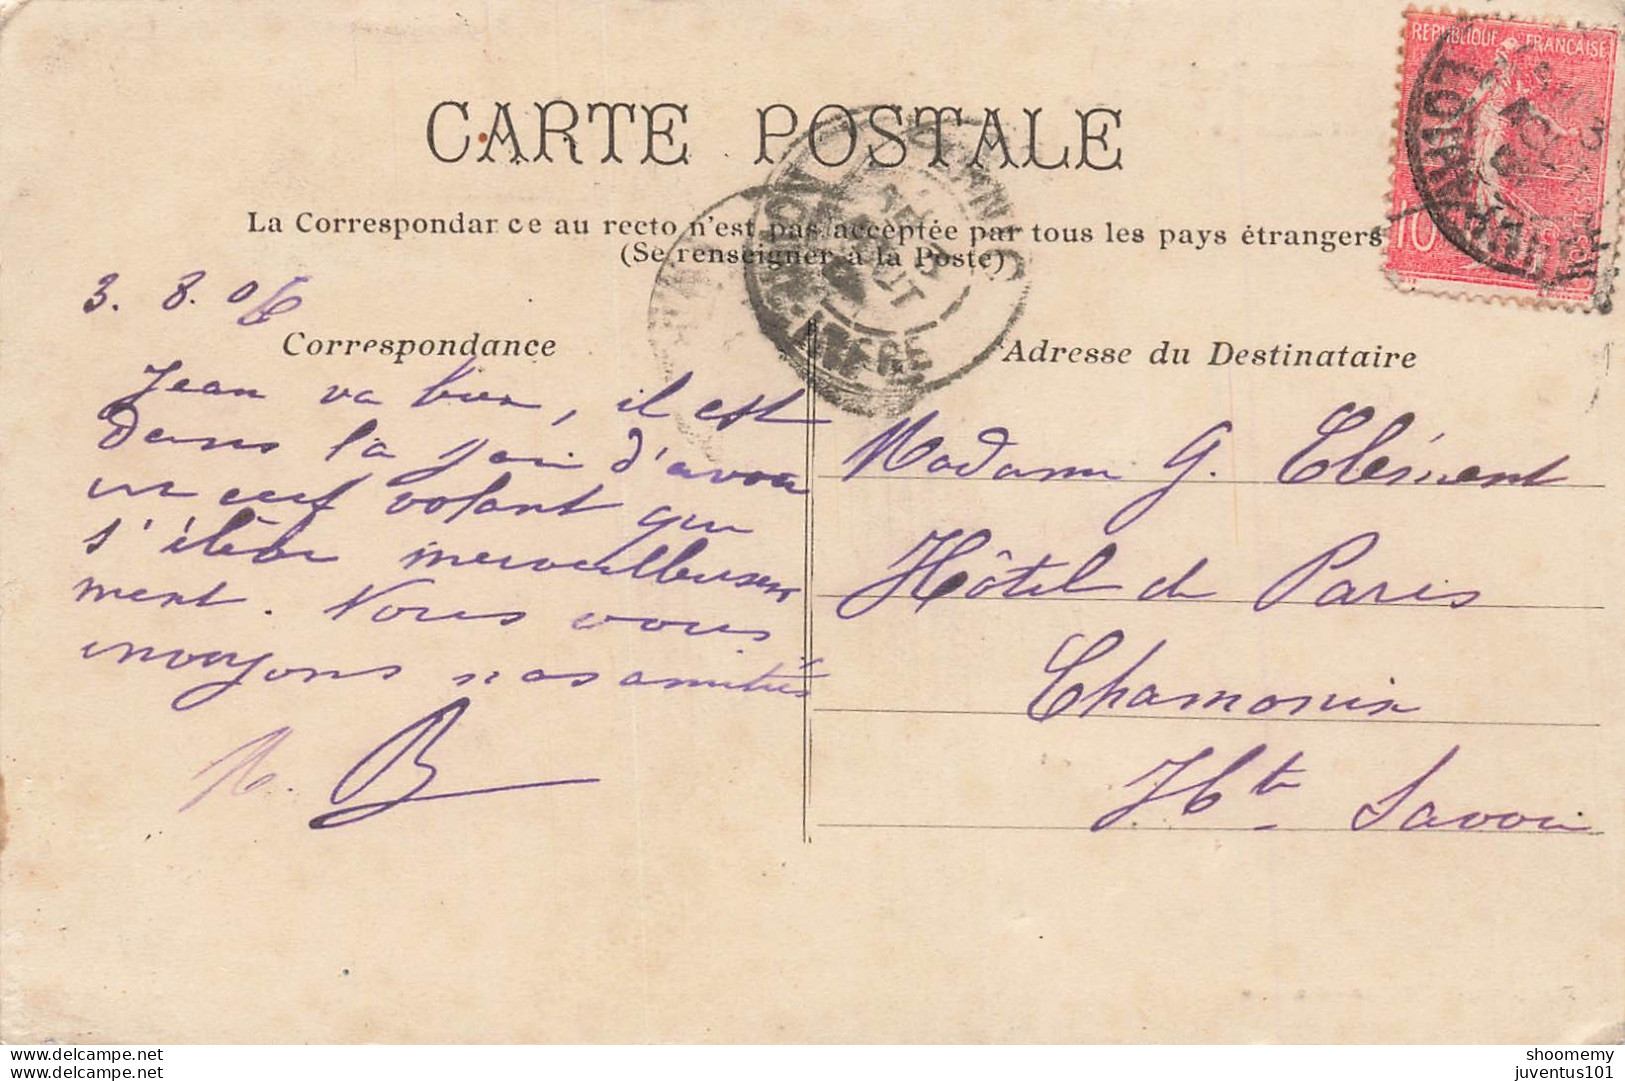 CARTE POSTALE
La Correspondance au recto n'est pas acceptée par tous les pays étrangers
(Se renseigner à la Poste)
REPUBLIQUE FRANÇAISE
10
3. 8. 06
Correspondance
Jean va bien, il est
dans la joie d'avoir
un cerf volant qui
s'élève merveilleuse
ment. Nous vous
envoyons nos amitiés
B
Adresse du Destinataire
Madame G. Clément
Hôtel de Paris
Chamonix
Hte Savoie
delcampe.net
delcampe.net
shoomemy
juventus101